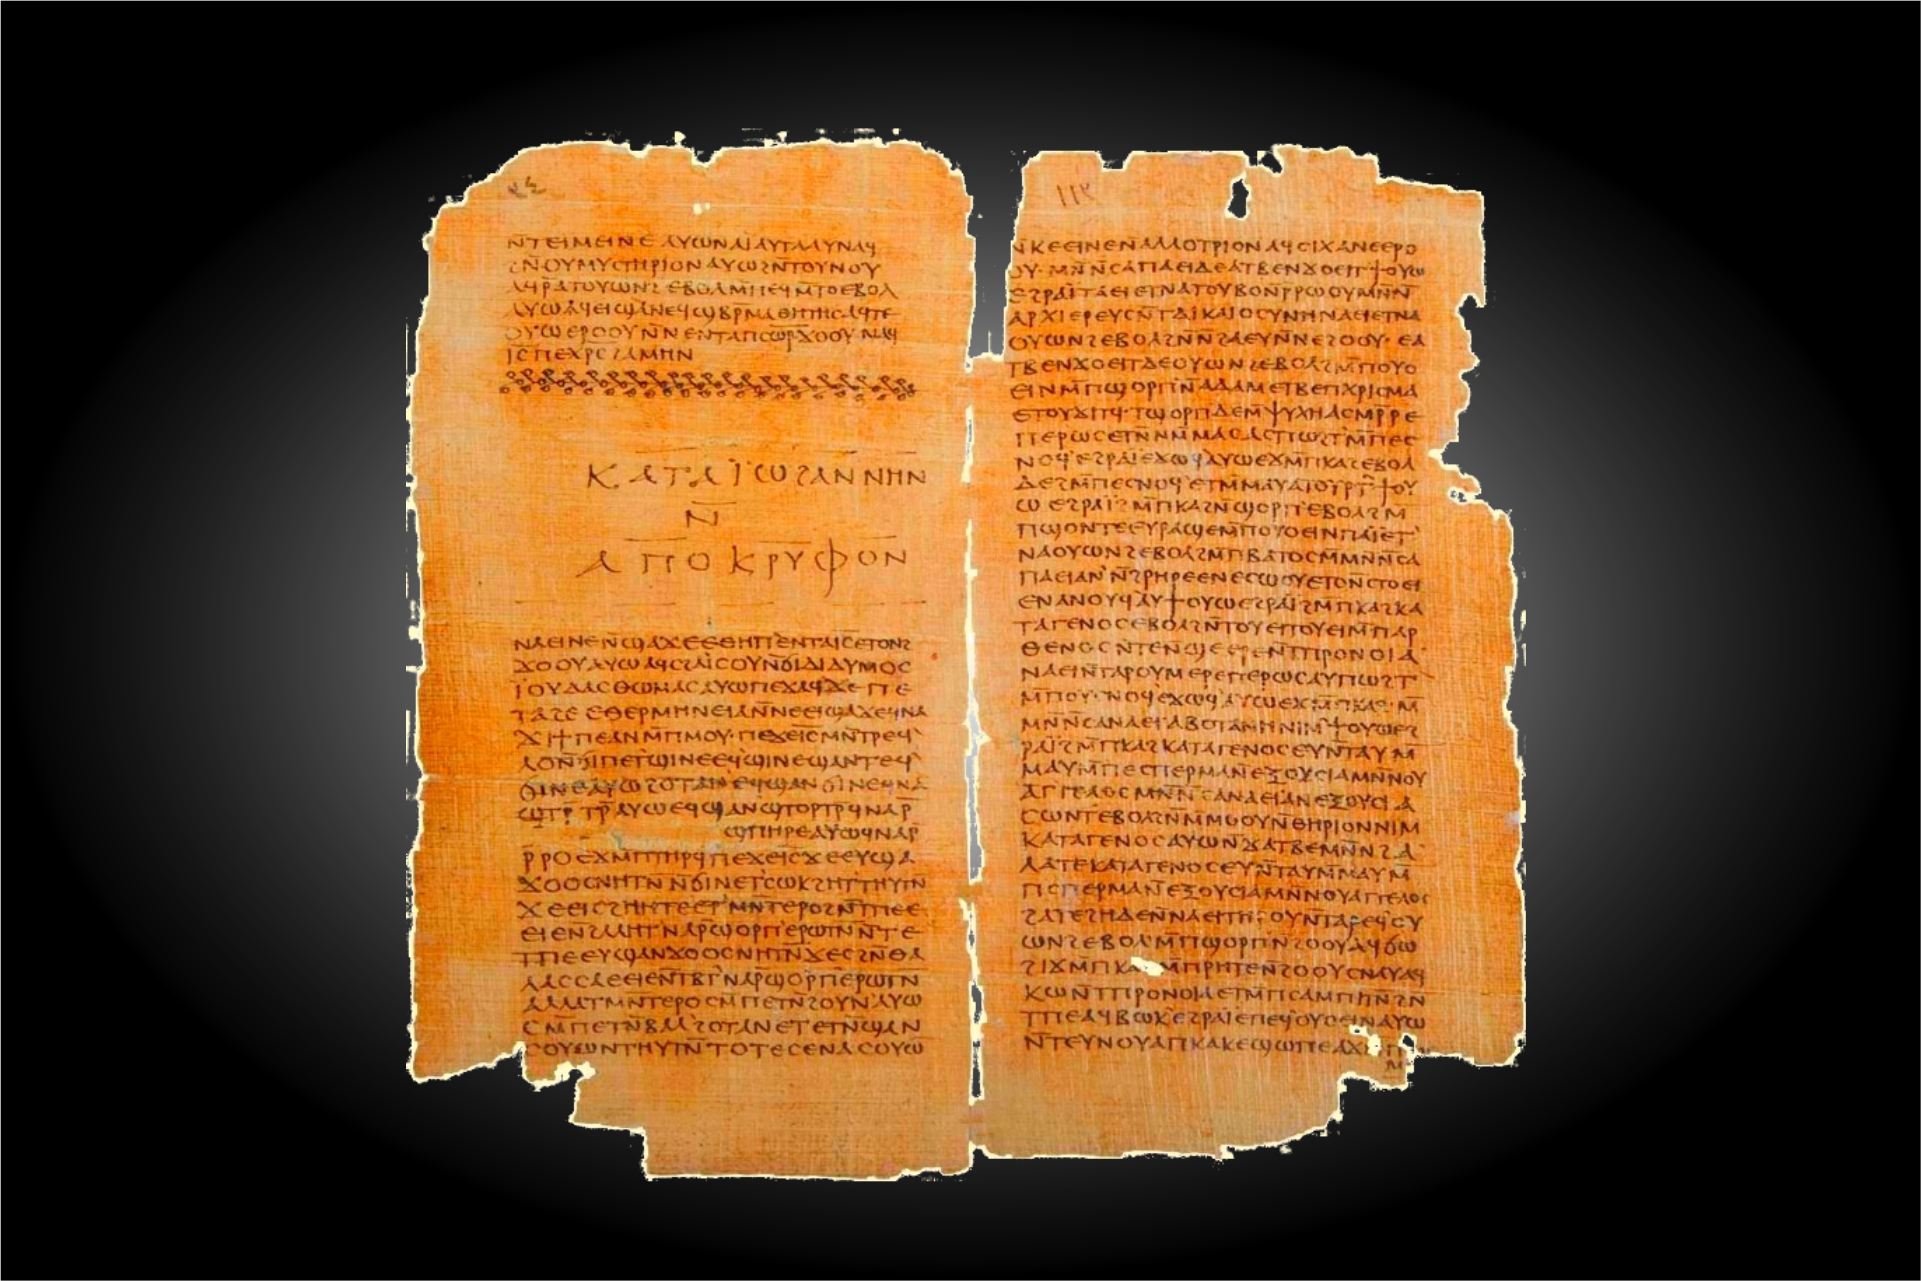 ⲛ̄ⲧⲉⲓⲙⲉⲓⲛⲉ ⲁⲩⲱ ⲛⲁⲓ ⲁⲩⲧⲁⲁⲩ ⲛⲁϥ
ϩⲛ̄ ⲟⲩⲙⲩⲥⲧⲏⲣⲓⲟⲛ ⲁⲩⲱ ϩⲛ̄ ⲧⲟⲩⲛⲟⲩ
ⲁϥⲣ̄ⲁⲧⲟⲩⲱⲛϩ ⲉⲃⲟⲗ ⲙ̄ⲡⲉϥⲙ̄ⲧⲟ ⲉⲃⲟⲗ
ⲁⲩⲱ ⲁϥⲉⲓ ϣⲁ ⲛⲉϥϣⲃⲣ̄ⲙⲁⲑⲏⲧⲏⲥ ⲁϥⲧⲉ
ⲟⲩⲱ ⲉⲣⲟⲟⲩ ⲛ̄ⲛⲉⲛⲧⲁⲡⲥⲱ̄ⲣ ϫⲟⲟⲩ ⲛⲁϥ
ⲓ̄ⲥ̄ ⲡⲉⲭⲣ̄ⲥ̄ ϩⲁⲙⲏⲛ
ⲕⲁⲧⲁ ⲓⲱϩⲁⲛⲛⲏⲛ
ⲛ̄
ⲁⲡⲟⲕⲣⲩⲫⲟⲛ
ⲛⲁⲉⲓ ⲛⲉ ⲛ̄ϣⲁϫⲉ ⲉⲑⲏⲡ ⲉⲛⲧⲁⲓ̄ⲥ̄ ⲉⲧⲟⲛϩ
ϫⲟⲟⲩ ⲁⲩⲱ ⲁϥⲥϩⲁⲓⲥⲟⲩ ⲛ̄ϭⲓ ⲇⲓⲇⲩⲙⲟⲥ
ⲓ̈ⲟⲩⲇⲁⲥ ⲑⲱⲙⲁⲥ ⲁⲩⲱ ⲡⲉϫⲁϥ ϫⲉ ⲡⲉ
ⲧⲁϩⲉ ⲉⲑⲉⲣⲙⲏⲛⲉⲓⲁ ⲛ̄ⲛⲉⲉⲓϣⲁϫⲉ ϥⲛⲁ
ϫⲓ ϯⲡⲉ ⲁⲛ ⲙ̄ⲡⲙⲟⲩ ⲡⲉϫⲉ ⲓ̄ⲥ̄ ⲙⲛ̄ⲧⲣⲉϥ
ⲗⲟ ⲛ̄ϭⲓ ⲡⲉⲧϣⲓⲛⲉ ⲉϥϣⲓⲛⲉ ϣⲁⲛⲧⲉϥ
ϭⲓⲛⲉ ⲁⲩⲱ ϩⲟⲧⲁⲛ ⲉϥϣⲁⲛϭⲓⲛⲉ ϥⲛⲁ
ϣⲧⲣ̄ⲧⲣ̄ ⲁⲩⲱ ⲉϥϣⲁⲛϣⲧⲟⲣⲧⲣ̄ ϥⲛⲁⲣ̄
ϣⲡⲏⲣⲉ ⲁⲩⲱ ϥⲛⲁⲣ̄
ⲣ̄ⲣⲟ ⲉϫⲙ̄ ⲡⲧⲏⲣϥ ⲡⲉϫⲉ ⲓ̄ⲥ̄ ϫⲉ ⲉⲩϣⲁ
ϫⲟⲟⲥ ⲛⲏⲧⲛ̄ ⲛ̄ϭⲓ ⲛⲉⲧⲥⲱⲕ ϩⲏⲧⲧⲏⲩⲧⲛ̄
ϫⲉ ⲉⲓⲥϩⲏⲏⲧⲉ ⲉⲧⲙⲛ̄ⲧⲉⲣⲟ ϩⲛ̄ ⲧⲡⲉ ⲉ
ⲉⲓⲉ ⲛ̄ϩⲁⲗⲏⲧ ⲛⲁⲣ̄ ϣⲟⲣⲡ ⲉⲣⲱⲧⲛ̄ ⲛ̄ⲧⲉ
ⲧⲡⲉ ⲉⲩϣⲁⲛϫⲟⲟⲥ ⲛⲏⲧⲛ̄ ϫⲉ ⲥϩⲛ̄ ⲑⲁ
ⲗⲁⲥⲥⲁ ⲉⲉⲓⲉ ⲛ̄ⲧⲃⲧ ⲛⲁⲣ̄ ϣⲟⲣⲡ ⲉⲣⲱⲧⲛ̄
ⲁⲗⲗⲁ ⲧⲙⲛ̄ⲧⲉⲣⲟ ⲥⲙ̄ⲡⲉⲧⲛ̄ϩⲟⲩⲛ ⲁⲩⲱ
ⲥⲙ̄ⲡⲉⲧⲛ̄ⲃⲁⲗ ϩⲟⲧⲁⲛ ⲉⲧⲉⲧⲛ̄ϣⲁⲛ
ⲥⲟⲩⲱⲛ ⲧⲏⲩⲧⲛ̄ ⲧⲟⲧⲉ ⲥⲉⲛⲁⲥⲟⲩⲱ
ⲛ̄ⲕⲉⲉⲓⲛⲉ ⲛ̄ⲁⲗⲗⲟⲧⲣⲓⲟⲛ ⲁϥⲥⲓⲭⲁⲛⲉ ⲉⲣⲟ
ⲟⲩ ⲙⲛ̄ⲛ̄ⲥⲁ ⲡⲁⲉⲓ ⲇⲉ ⲁⲧⲃⲉⲛϫⲟⲉⲓⲧ ϯⲟⲩⲱ
ⲉϩⲣⲁⲓ̈ ⲧⲁⲉⲓ ⲉⲧⲛⲁⲧⲟⲩⲃⲟ ⲛ̄ⲣ̄ⲣⲱⲟⲩ ⲙⲛ̄ⲛ̄
ⲁⲣⲭⲓⲉⲣⲉⲩⲥ ⲛ̄ⲧⲇⲓⲕⲁⲓⲟⲥⲩⲛⲏ ⲛⲁⲉⲓ ⲉⲧⲛⲁ
ⲟⲩⲱⲛϩ ⲉⲃⲟⲗ ϩⲛ̄ⲛ̄ϩⲁⲉⲩ ⲛ̄ⲛⲉϩⲟⲟⲩ ⲉⲁ
ⲧⲃⲉⲛϫⲟⲉⲓⲧ ⲇⲉ ⲟⲩⲱⲛϩ ⲉⲃⲟⲗ ϩⲙ̄ ⲡⲟⲩⲟ
ⲉⲓⲛ ⲙ̄ⲡϣⲟⲣⲡ ⲛ̄ⲁⲇⲁⲙ ⲉⲧⲃⲉ ⲡⲭⲣⲓⲥⲙⲁ
ⲉⲧⲟⲩϫⲓⲧϥ ⲧϣⲟⲣⲡ ⲇⲉ ⲙ̄ⲯⲩⲭⲏ ⲁⲥⲙⲣ̄ⲣⲉ
ⲡⲉⲣⲱⲥ ⲉⲧⲛ̄ⲙ̄ⲙⲁⲥ ⲁⲥⲡⲱϩⲧ ⲙ̄ⲡⲉⲥ
ⲛⲟϥ ⲉϩⲣⲁⲓ̈ ⲉϫⲱϥ ⲁⲩⲱ ⲉϫⲙ̄ ⲡⲕⲁϩ ⲉⲃⲟⲗ
ⲇⲉ ϩⲙ̄ ⲡⲉⲥⲛⲟϥ ⲉⲧⲙ̄ⲙⲁⲩ ⲁⲡⲟⲩⲣⲧ̄ ϯⲟⲩ
ⲱ ⲉϩⲣⲁⲓ̈ ϩⲙ̄ ⲡⲕⲁϩ ⲛ̄ϣⲟⲣⲡ ⲉⲃⲟⲗ ϩⲙ̄
ⲡϣⲟⲛⲧⲉ ⲉⲩⲣⲁϣⲉ ⲙ̄ⲡⲟⲩⲟⲉⲓⲛ ⲡⲁⲓ̈ ⲉⲧ
ⲛⲁⲟⲩⲱⲛϩ ⲉⲃⲟⲗ ϩⲙ̄ ⲡⲃⲁⲧⲟⲥ ⲙⲛ̄ⲛ̄ⲥⲁ
ⲡⲁⲉⲓ ⲁⲛ̄ϩⲣⲏⲣⲉ ⲉⲛⲉⲥⲱⲟⲩ ⲉⲧⲟⲛ ⲥⲧⲟⲉⲓ
ⲉⲛⲁⲛⲟⲩϥ ⲁⲩϯⲟⲩⲱ ⲉϩⲣⲁⲓ̈ ϩⲙ̄ ⲡⲕⲁϩ ⲕⲁ
ⲧⲁ ⲅⲉⲛⲟⲥ ⲉⲃⲟⲗ ϩⲛ̄ ⲧⲟⲩⲉⲓ ⲧⲟⲩⲉⲓ ⲙ̄ⲡⲁⲣ
ⲑⲉⲛⲟⲥ ⲛ̄ⲧⲉ ⲛ̄ϣⲉⲉⲣⲉ ⲛ̄ⲧⲡⲣⲟⲛⲟⲓⲁ
ⲛⲁⲉⲓ ⲛ̄ⲧⲁⲣⲟⲩⲙⲉⲣⲉ ⲡⲉⲣⲱⲥ ⲁⲩⲡⲱϩⲧ
ⲙ̄ⲡⲟⲩⲥⲛⲟϥ ⲉϫⲱϥ ⲁⲩⲱ ⲉϫⲙ̄ ⲡⲕⲁϩ
ⲙⲛ̄ⲛ̄ⲥⲁ ⲛⲁⲉⲓ ⲁⲃⲟⲧⲁⲛⲏ ⲛⲓⲙ ϯⲟⲩⲱ ⲉϩ
ⲣⲁⲓ̈ ϩⲙ̄ ⲡⲕⲁϩ ⲕⲁⲧⲁ ⲅⲉⲛⲟⲥ ⲉⲩⲛ̄ⲧⲁⲩ ⲙ̄
ⲙⲁⲩ ⲙ̄ⲡⲉⲥⲡⲉⲣⲙⲁ ⲛ̄ⲉⲝⲟⲩⲥⲓⲁ ⲙⲛ̄ ⲛⲟⲩ
ⲁⲅⲅⲉⲗⲟⲥ ⲙⲛ̄ⲛ̄ⲥⲁ ⲛⲁⲉⲓ ⲁⲛⲉⲝⲟⲩⲥⲓⲁ
ⲥⲱⲛⲧ ⲉⲃⲟⲗ ϩⲛ̄ ⲙ̄ⲙⲟⲟⲩ ⲛ̄ⲑⲏⲣⲓⲟⲛ ⲛⲓⲙ
ⲕⲁⲧⲁ ⲅⲉⲛⲟⲥ ⲁⲩⲱ ⲛ̄ϫⲁⲧⲃⲉ ⲙⲛ̄ ⲛ̄ϩⲁ
ⲗⲁⲧⲉ ⲕⲁⲧⲁ ⲅⲉⲛⲟⲥ ⲉⲩⲛ̄ⲧⲁⲩ ⲙ̄ⲙⲁⲩ ⲙ̄
ⲡⲥⲡⲉⲣⲙⲁ ⲛ̄ⲉⲝⲟⲩⲥⲓⲁ ⲙⲛ̄ ⲛⲟⲩⲁⲅⲅⲉⲗⲟⲥ
ϩⲁⲧⲉϩⲏ ⲇⲉ ⲛ̄ⲛⲁⲉⲓ ⲧⲏⲣⲟⲩ ⲛ̄ⲧⲁⲣⲉϥⲟⲩ
ⲱⲛϩ ⲉⲃⲟⲗ ⲙ̄ⲡϣⲟⲣⲡ ⲛ̄ϩⲟⲟⲩ ⲁϥϭⲱ
ϩⲓϫⲙ̄ ⲡⲕⲁϩ ⲙ̄ⲡⲣⲏⲧⲉ ⲛ̄ϩⲟⲟⲩ ⲥⲛⲁⲩ ⲁϥ
ⲕⲱ ⲛ̄ⲧⲡⲣⲟⲛⲟⲓⲁ ⲉⲧⲙ̄ⲡⲥⲁⲙⲡⲓⲧⲛ̄ ϩⲛ̄
ⲧⲡⲉ ⲁϥⲃⲱⲕ ⲉϩⲣⲁⲓ̈ ⲉⲡⲉϥⲟⲩⲟⲉⲓⲛ ⲁⲩⲱ
ⲛ̄ⲧⲉⲩⲛⲟⲩ ⲁⲡⲕⲁⲕⲉ ϣⲱⲡⲉ ⲁϫⲙ̄